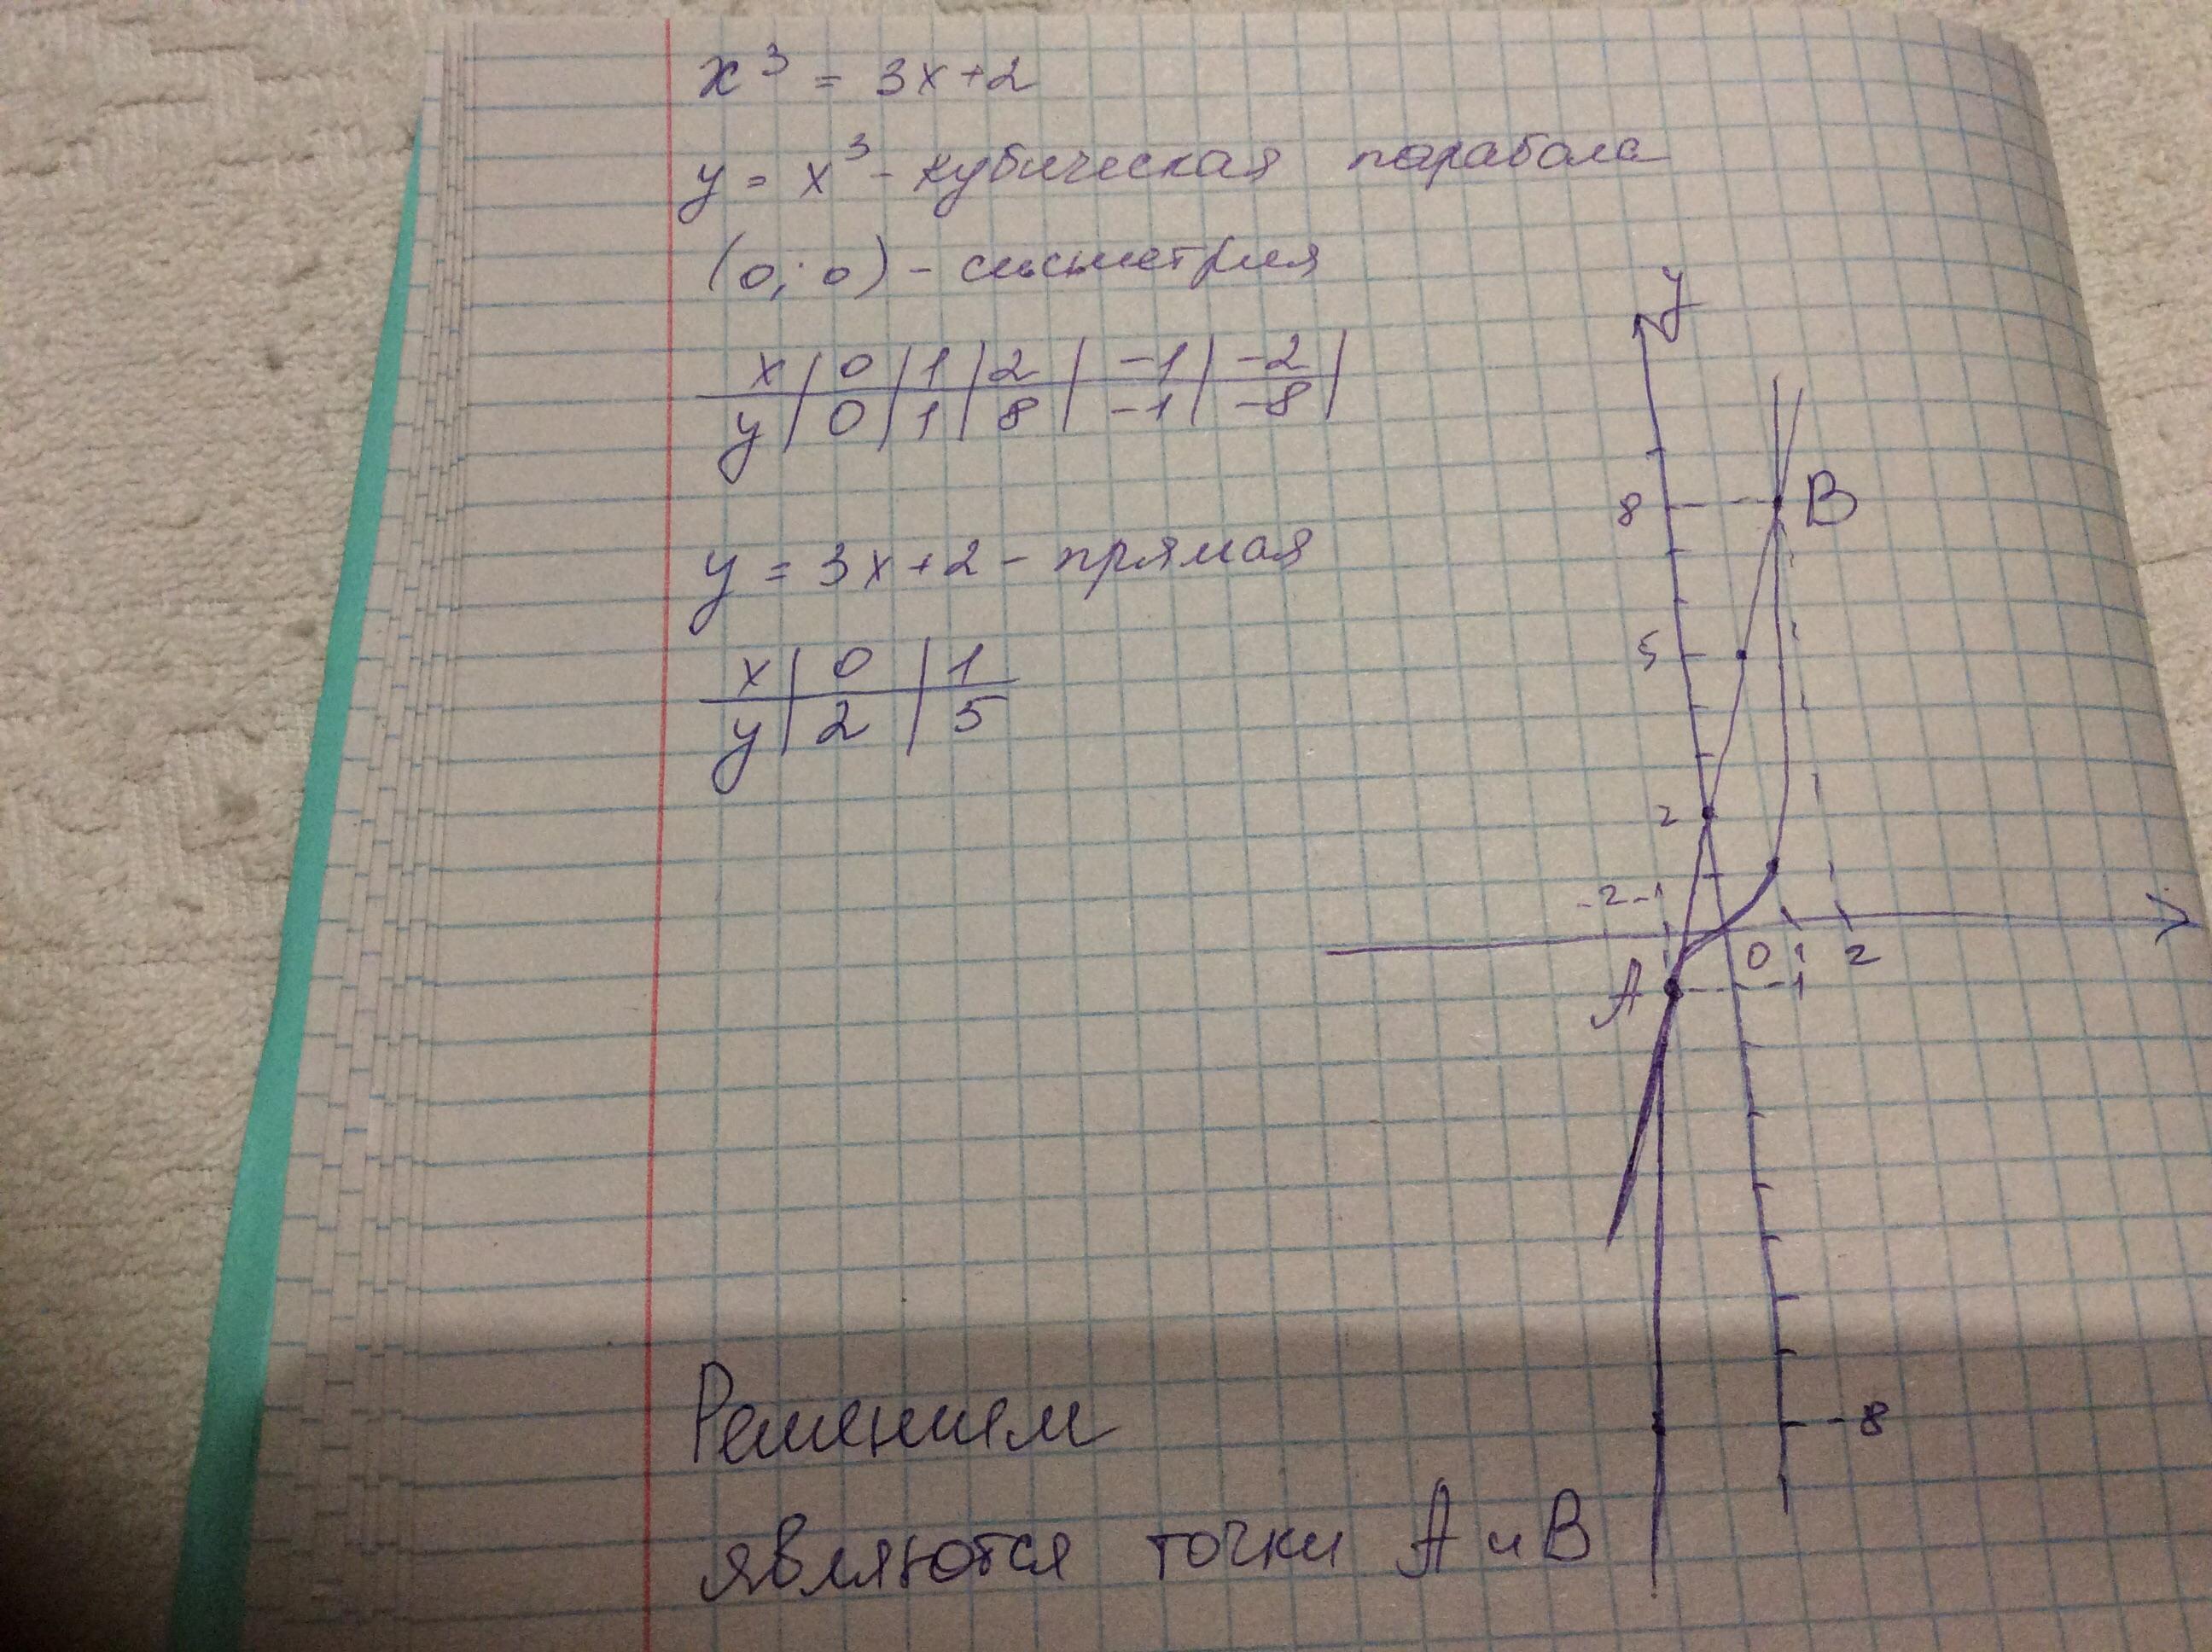 x³ = 3x+2
y = x³ - кубическая парабола
(0; 0) - симметрия
x | 0 | 1 | 2 | -1 | -2 |
y | 0 | 1 | 8 | -1 | -8 |
y = 3x+2 - прямая
x | 0 | 1
y | 2 | 5
y
8
B
5
2
-2 -1
0 1 2
A
-1
-8
Решением
являются точки A и B